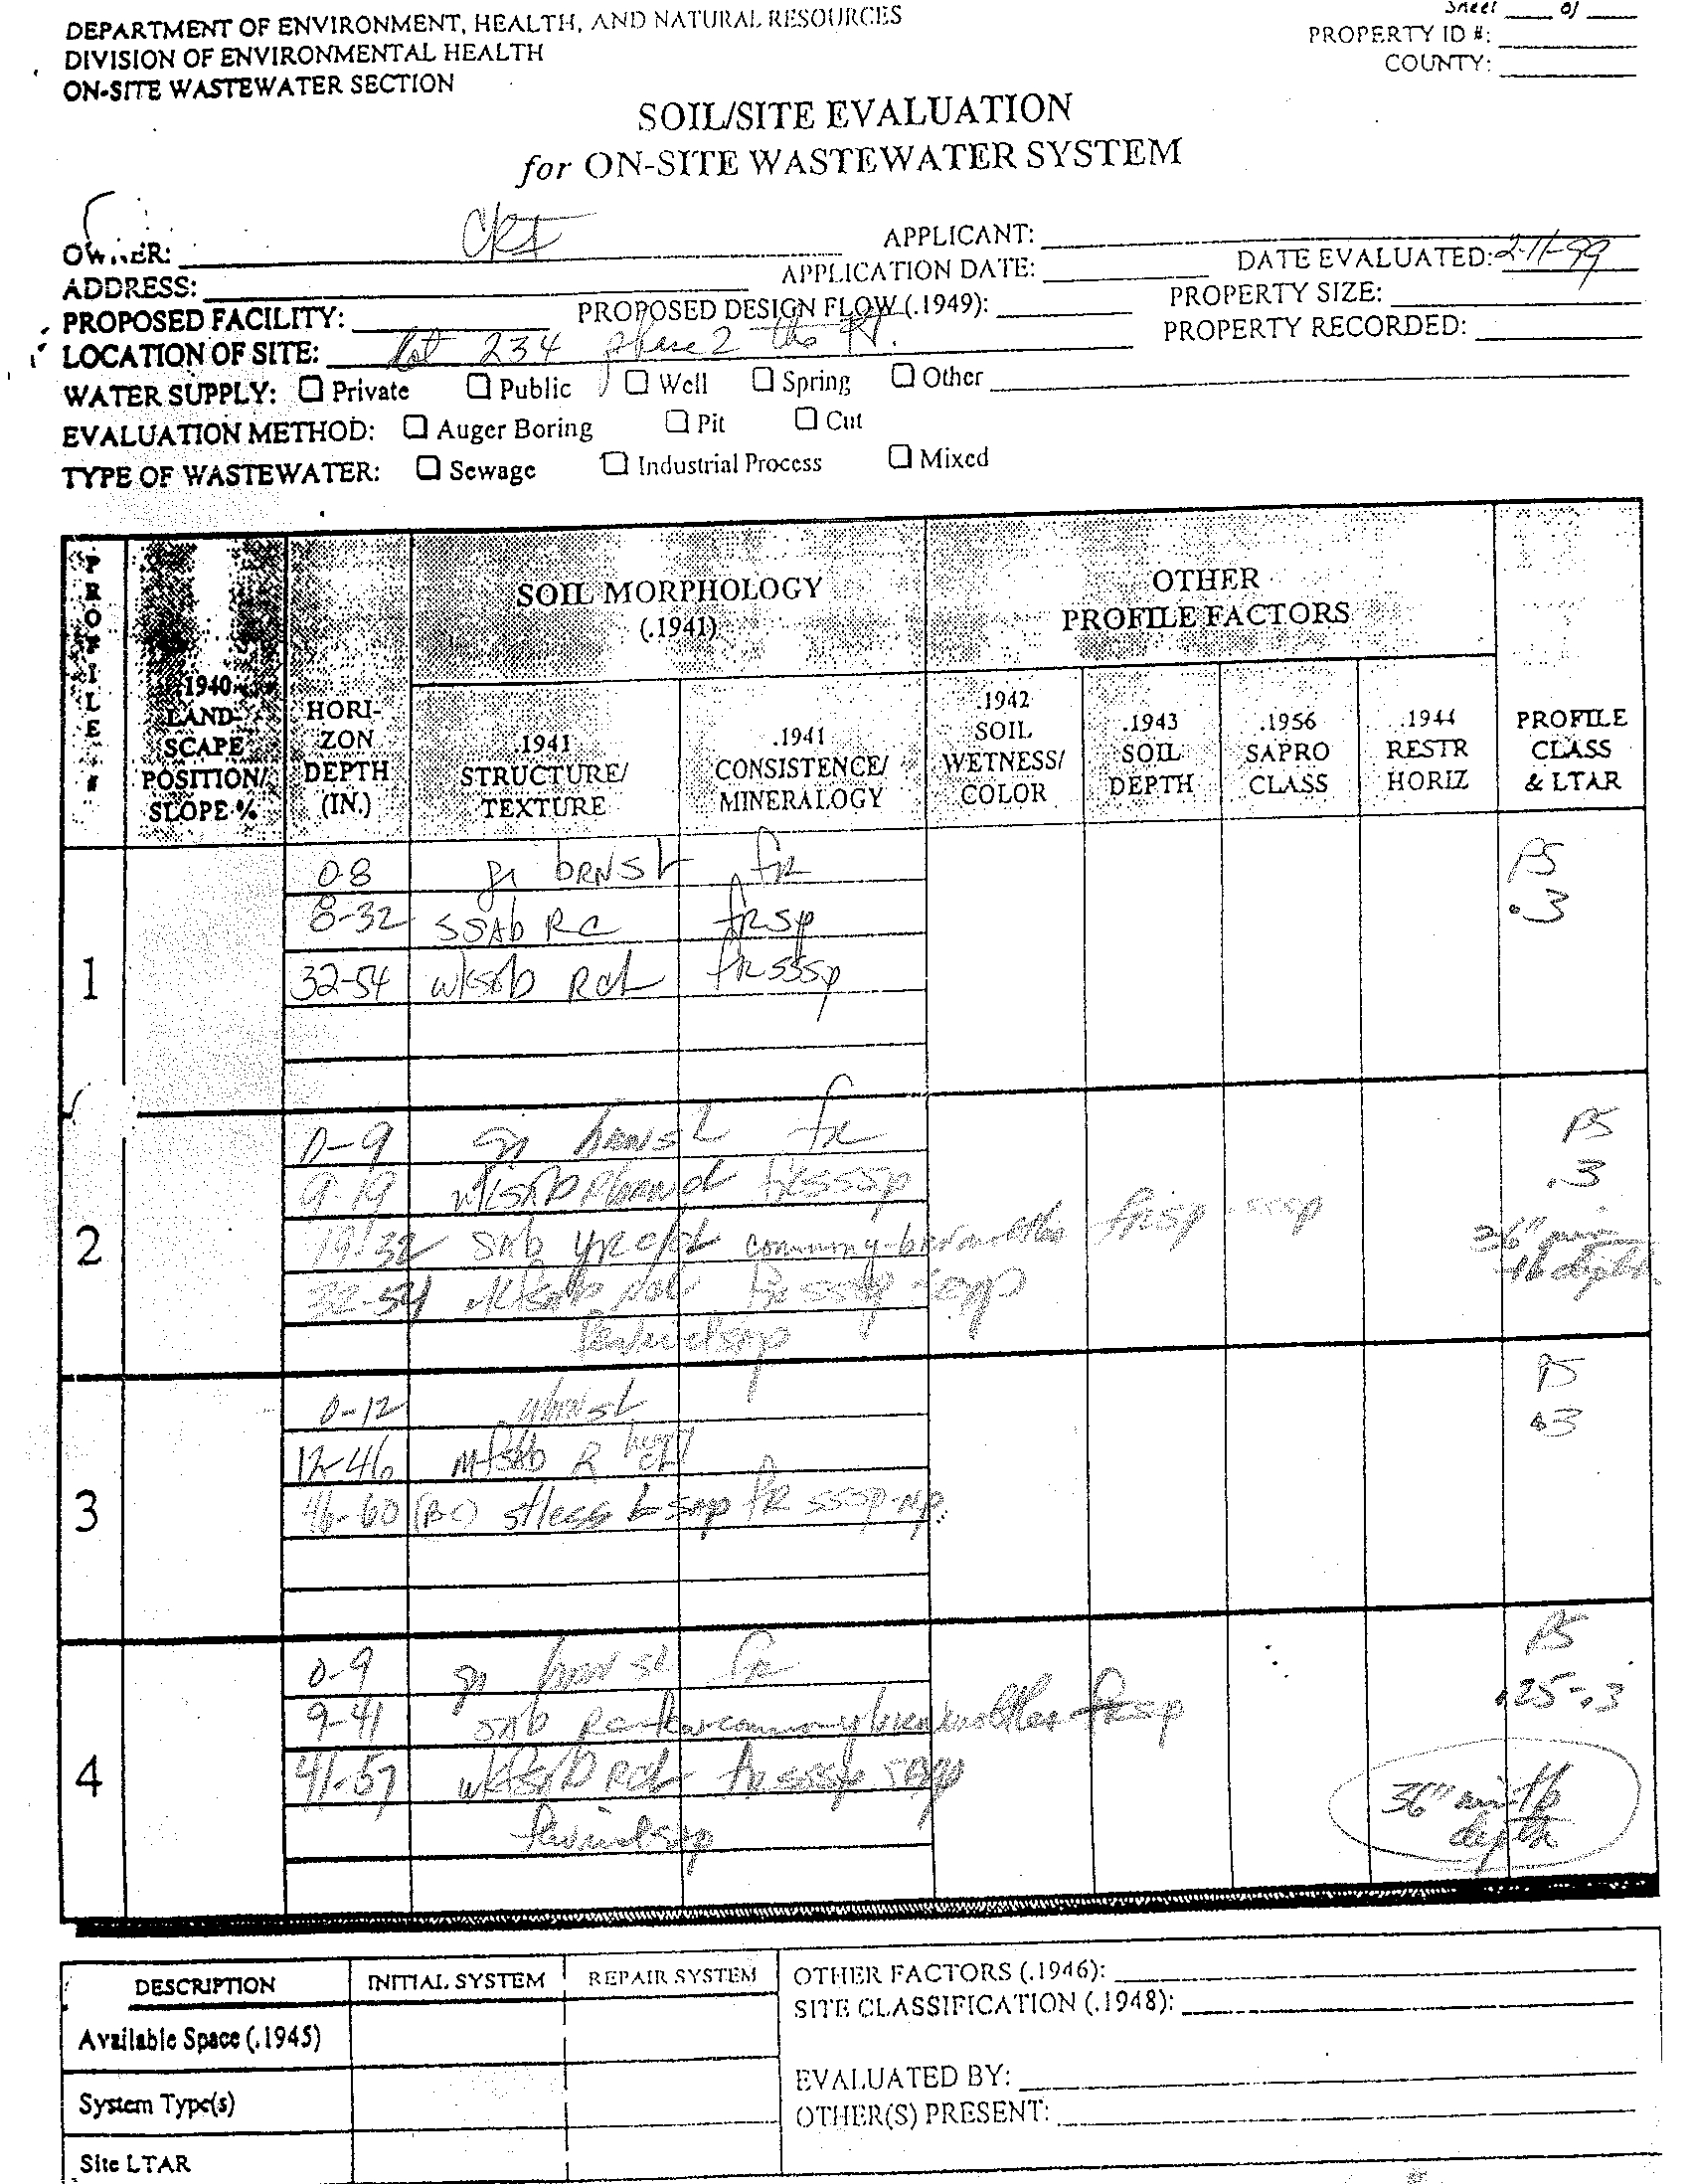 DEPARTMENT OF ENVIRONMENT, HEALTH, AND NATURAL RESOURCES
DIVISION OF ENVIRONMENTAL HEALTH
ON-SITE WASTEWATER SECTION
Sheet ____ of ____
PROPERTY ID #:
COUNTY:
SOIL/SITE EVALUATION
for ON-SITE WASTEWATER SYSTEM
OWNER: APPLICANT:
ADDRESS: APPLICATION DATE: DATE EVALUATED: 2-11-99
PROPOSED FACILITY: PROPOSED DESIGN FLOW (.1949): PROPERTY SIZE:
LOCATION OF SITE: Lot 234 phase 2 the PROPERTY RECORDED:
WATER SUPPLY: ☐ Private ☐ Public ☐ Well ☐ Spring ☐ Other
EVALUATION METHOD: ☐ Auger Boring ☐ Pit ☐ Cut
TYPE OF WASTEWATER: ☐ Sewage ☐ Industrial Process ☐ Mixed
PROFILE #
.1940 LAND-SCAPE POSITION/ SLOPE %
HORI-ZON DEPTH (IN.)
SOIL MORPHOLOGY (.1941)
.1941 STRUCTURE/ TEXTURE
.1941 CONSISTENCE/ MINERALOGY
OTHER PROFILE FACTORS
.1942 SOIL WETNESS/ COLOR
.1943 SOIL DEPTH
.1956 SAPRO CLASS
.1944 RESTR HORIZ
PROFILE CLASS & LTAR
1
0-8 gr brn sL fr PS
8-32 SSAb RC fRSP .3
32-54 wksab RCL fRSSSP
2
0-9 gr brn sL fr PS
9-19 wksab cL frsssp .3
19-32 sab common mottles frsp-sssp 36" min
32-54 wksab RCL fr sssp depth
3
0-12 brn sL PS
12-46 sab R .3
46-60 (BC) stless L sap fR sssp-np
4
0-9 gr brn sL fr PS
9-41 sab common mottles frsp .25-.3
41-57 wksab RCL fr sssp
36" min tb depth
DESCRIPTION INITIAL SYSTEM REPAIR SYSTEM
Available Space (.1945)
System Type(s)
Site LTAR
OTHER FACTORS (.1946):
SITE CLASSIFICATION (.1948):
EVALUATED BY:
OTHER(S) PRESENT: